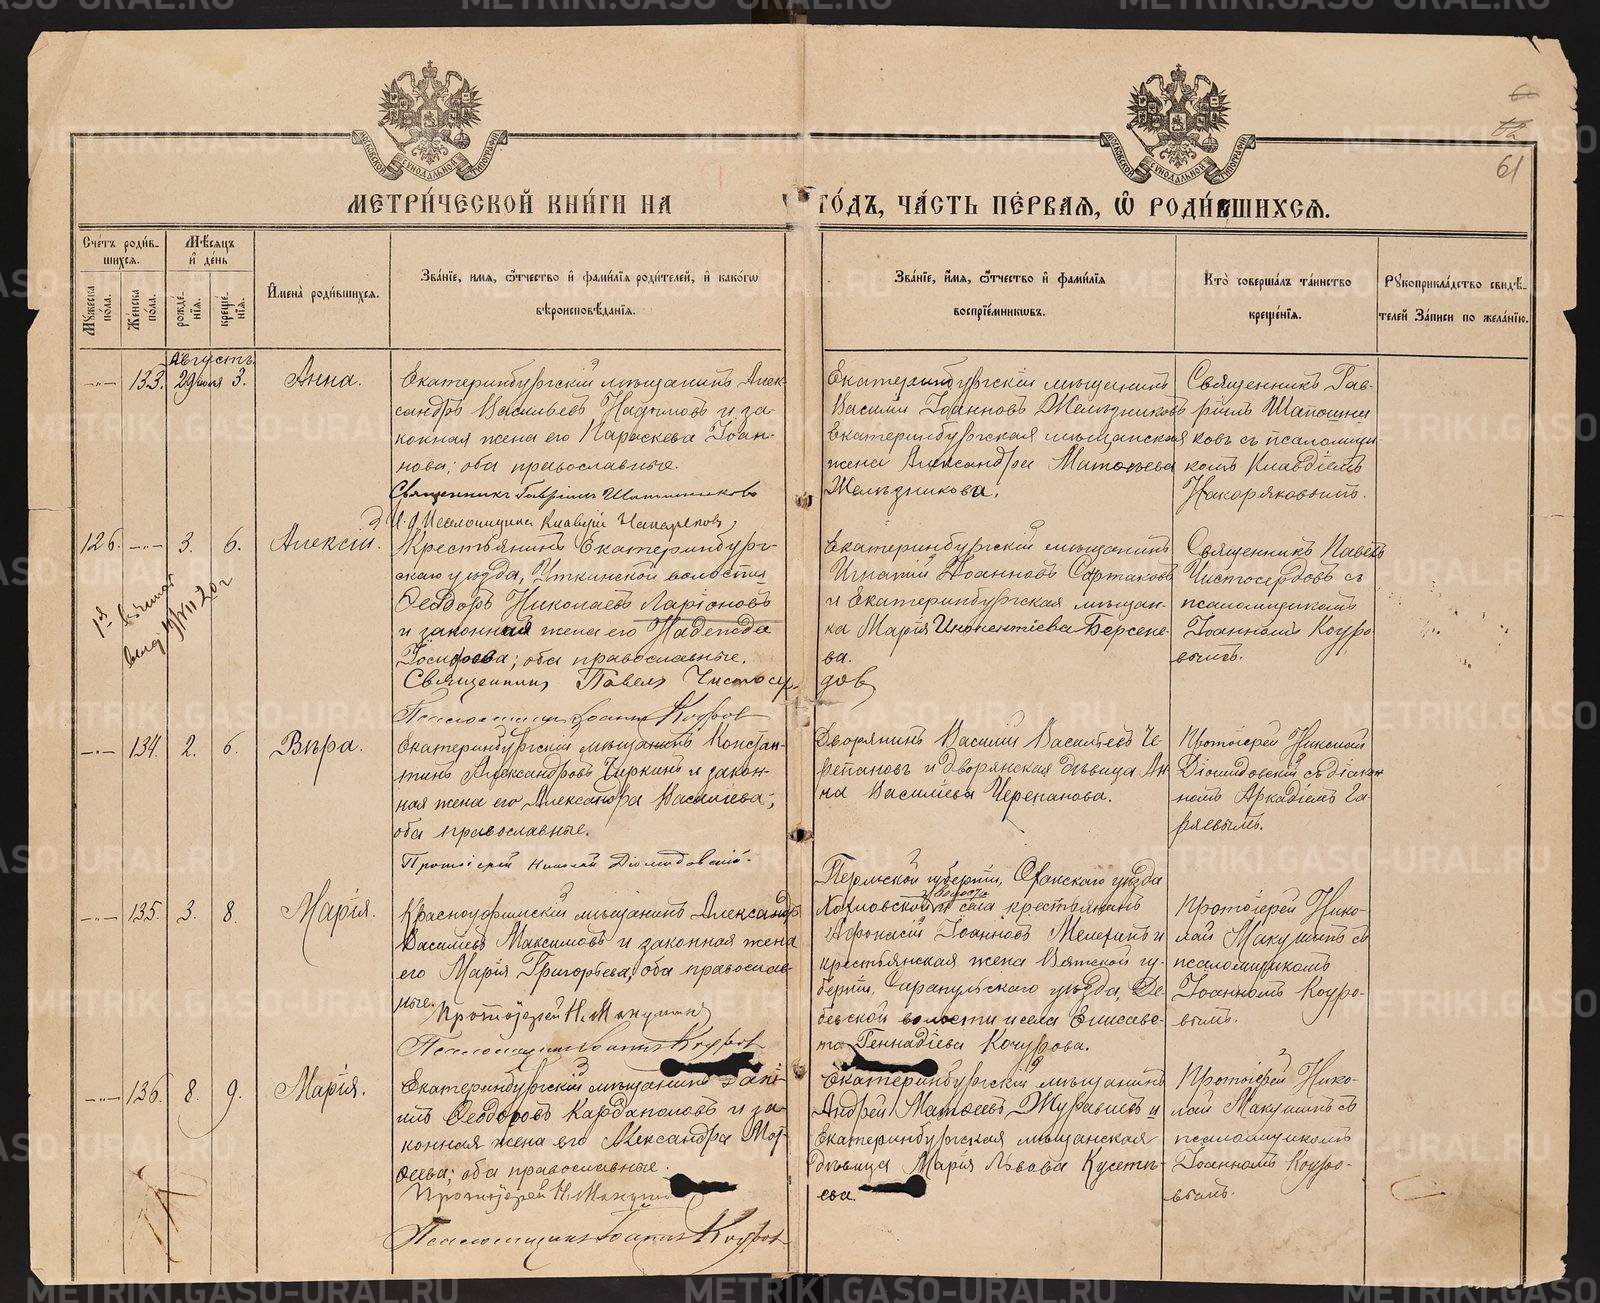 61
МЕТРИ́ЧЕСКОЙ КНИ́ГИ НА ГО́ДЪ, ЧА́СТЬ ПЕ́РВАЯ, Ѡ РОДИ́ВШИХСЯ.
Сче́тъ роди́в-
шихся.
Мѣсяцъ
и де́нь
Мужеска по́ла.
Женска по́ла.
рожде́-
нія.
креще́-
нія.
Имена̀ роди́вшихся.
Зва́ніе, имя, ѻтчество и фами́лія роди́телей, и како́гѡ
вѣроисповѣ́данія.
Зва́ніе, имя, ѻтчество и фами́лія
воспріе́мникѡвъ.
Кто̀ соверша́лъ та́инство
креще́нія.
Рукоприкла́дство свидѣ́-
телей за́писи по жела́нію.
Августъ
133. 29 июля 3.
Анна.
Екатеринбургскій мѣщанинъ Алек-
сандръ Васильевъ Надымовъ и за-
конная жена его Параскева Іоан-
нова; оба православные.
Священникъ Гавріилъ Шапошниковъ
И. д. Псаломщика Клавдій Накаряковъ
Екатеринбургскій мѣщанинъ
Василій Іоанновъ Желѣзниковъ
Екатеринбургская мѣщанская
жена Александра Матѳеева
Желѣзникова.
Священникъ Гав-
ріилъ Шапошни
ковъ съ псаломщи
комъ Клавдіемъ
Накоряковымъ.
126. 3. 6.
Алексій.
Крестьянинъ Екатеринбург-
скаго уѣзда, Уткинской волости
Ѳеодоръ Николаевъ Ларіоновъ
и законная жена его Надежда
Іосифова; оба православные.
Священникъ Павелъ Чистосер-
дов
Псаломщикъ Іоаннъ Коуров
Екатеринбургскій мѣщанинъ
Игнатій Іоанновъ Сартаковъ
и Екатеринбургская мѣщан-
ка Марія Инокентіева Берсене-
ва.
Священникъ Павелъ
Чистосердовъ съ
псаломщикомъ
Іоанномъ Коуро
вымъ.
134. 2. 6.
Вѣра.
Екатеринбургскій мѣщанинъ Констан-
тинъ Александровъ Чиркинъ и закон-
ная жена его Александра Василіева;
оба православные.
Протоіерей Николай Діомидовскій.
Дворянинъ Василій Васильевъ Че-
репановъ и дворянская дѣвица Ан-
на Василіева Черепанова.
Протоіерей Николай
Діомидовскій съ діако-
номъ Аркадіемъ Га
ряевымъ.
135. 3. 8.
Марія.
Красноуфимскій мѣщанинъ Александръ
Василіевъ Максимовъ и законная жена
его Марія Григорьева, оба православ-
ные.
Протоіерей Н. Макушинъ
Псаломщикъ Іоаннъ Коуров
Пермской губерніи, Оханскаго уѣзда
Хохловской волости и села крестьянинъ
Афонасій Іоанновъ Мелехинъ и
крестьянская жена Вятской гу-
берніи, Сарапульскаго уѣзда, Де-
бевской волости и села Елисаве-
та Геннадіева Кочурова.
Протоіерей Нико-
лай Макушинъ съ
псаломщикомъ
Іоанномъ Коуро-
вымъ.
136. 8. 9.
Марія.
Екатеринбургскій мѣщанинъ Дані-
илъ Ѳеодоровъ Кардаполовъ и за-
конная жена его Александра Мат-
ѳеева; оба православные.
Протоіерей Н. Макушин
Псаломщикъ Іоаннъ Коуров
Екатеринбургскій мѣщанинъ
Андрей Матѳеевъ Журавлевъ и
Екатеринбургская мѣщанская
дѣвица Марія Львова
ева.
Протоіерей Нико-
лай Макушинъ съ
псаломщикомъ
Іоанномъ Коуро-
вымъ.
METRIKI.GASO-URAL.RU